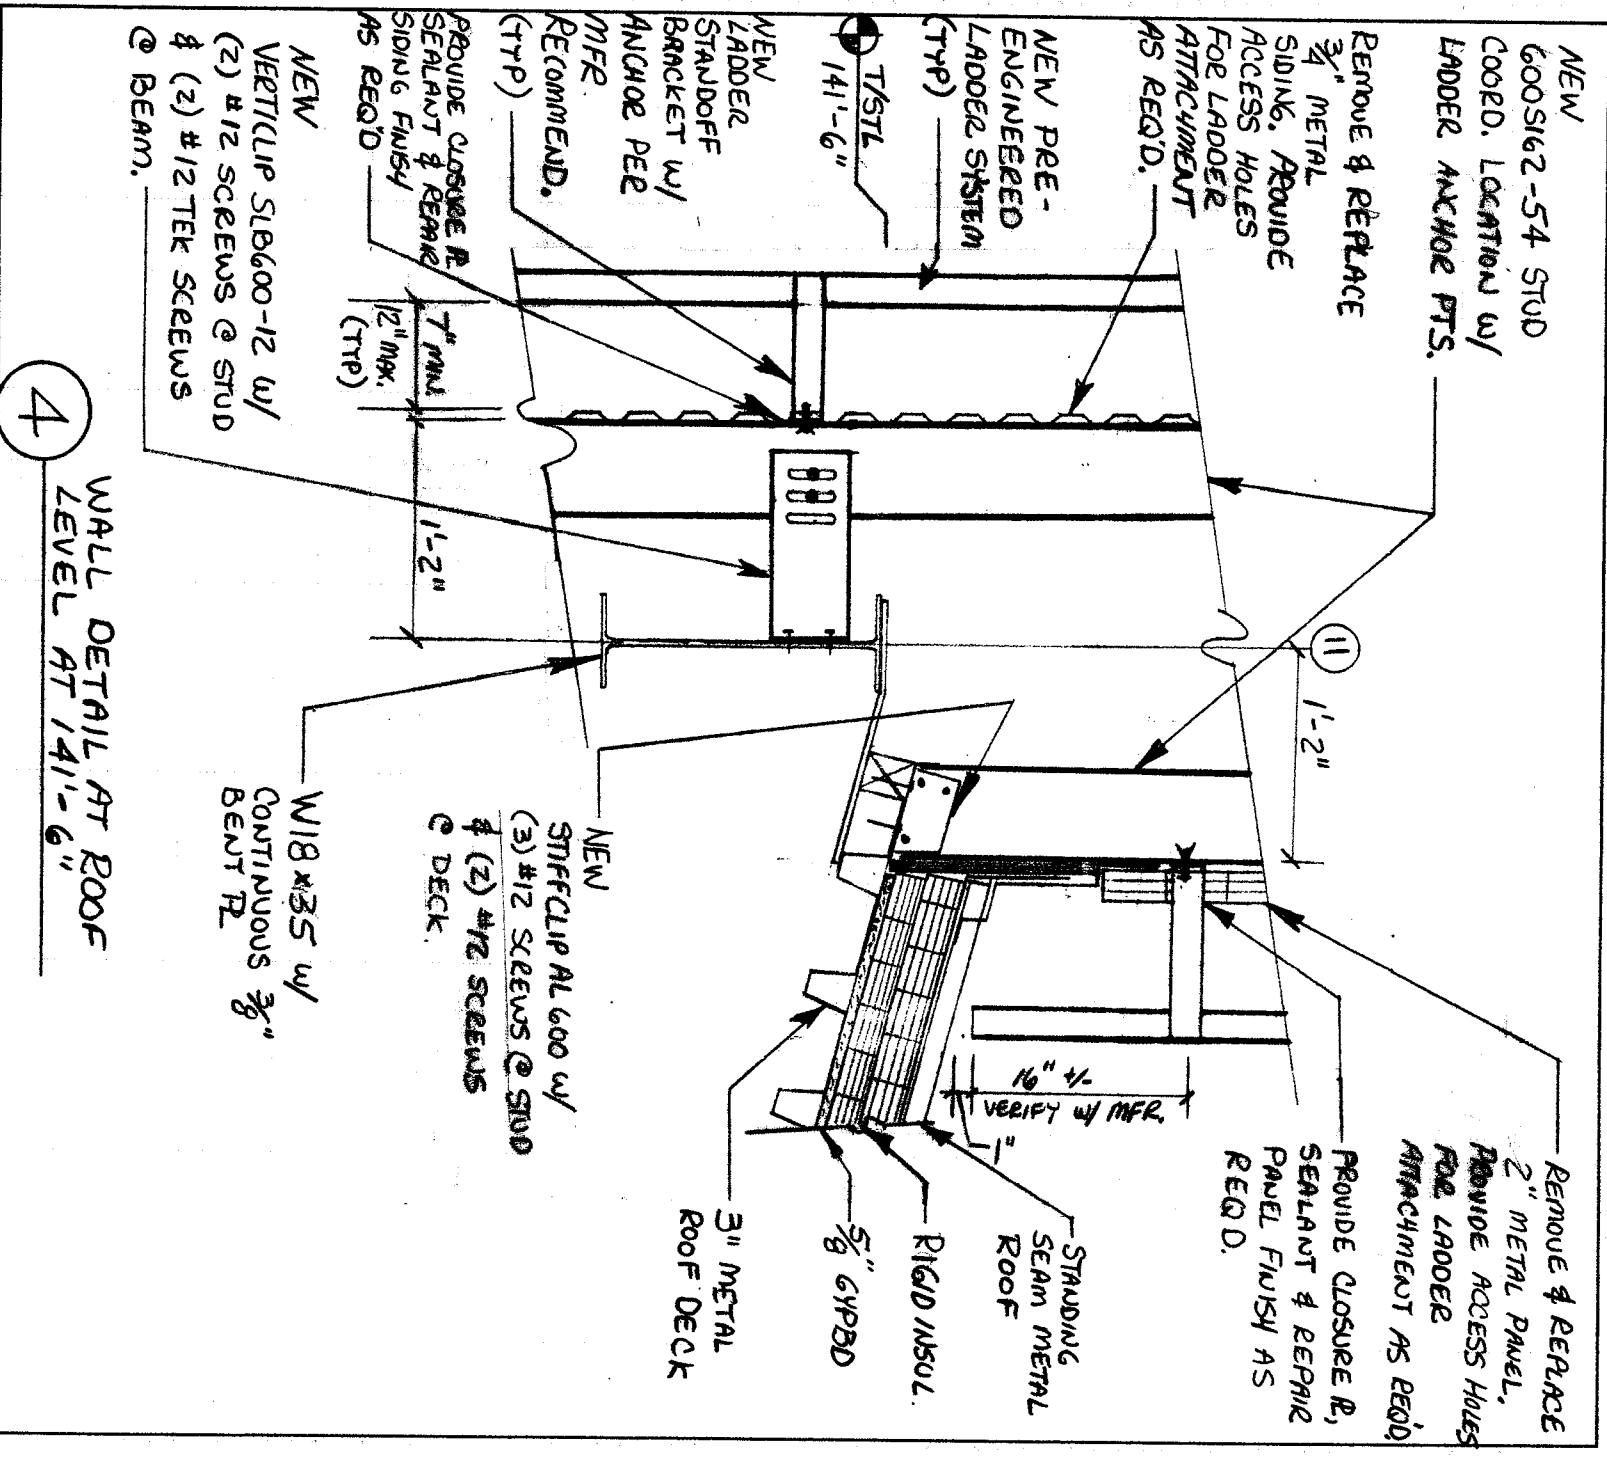 NEW
600S162-54 STUD
COORD. LOCATION W/
LADDER ANCHOR PTS.
REMOVE & REPLACE
3/4" METAL
SIDING. PROVIDE
ACCESS HOLES
FOR LADDER
ATTACHMENT
AS REQ'D.
NEW PRE-
ENGINEERED
LADDER SYSTEM
(TYP)
T/STL
141'-6"
NEW
LADDER
STANDOFF
BRACKET W/
ANCHOR PER
MFR.
RECOMMEND.
(TYP)
PROVIDE CLOSURE PL
SEALANT & REPAIR
SIDING FINISH
AS REQ'D
NEW
VERTICLIP SLB600-12 W/
(2) #12 SCREWS @ STUD
& (2) #12 TEK SCREWS
@ BEAM.
7" MIN.
12" MAX.
(TYP)
1'-2"
11
1'-2"
REMOVE & REPLACE
2" METAL PANEL.
PROVIDE ACCESS HOLES
FOR LADDER
ATTACHMENT AS REQ'D.
PROVIDE CLOSURE PL,
SEALANT & REPAIR
PANEL FINISH AS
REQ'D.
16" +/-
VERIFY W/ MFR.
1"
STANDING
SEAM METAL
ROOF
RIGID INSUL.
5/8" GYPBD
3" METAL
ROOF DECK
NEW
STIFFCLIP AL600 W/
(3) #12 SCREWS @ STUD
& (2) #12 SCREWS
@ DECK.
W18x35 W/
CONTINUOUS 3/8"
BENT PL
4
WALL DETAIL AT ROOF
LEVEL AT 141'-6"